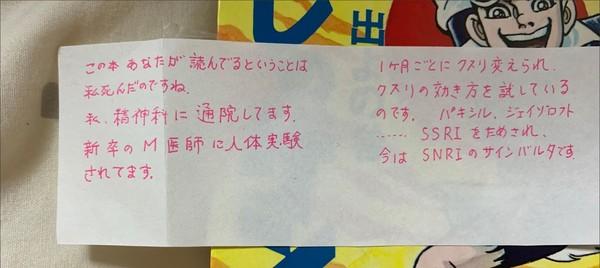 この本 あなたが 読んでるということは
私死んだのですね.
私、精神科に通院してます.
新卒のM医師に人体実験
されてます.
1ケ月ごとにクスリ変えられ、
クスリの効き方を試している
のです. パキシル、ジェイゾロフト
…… SSRIをためされ、
今は SNRIのサインバルタです.
出